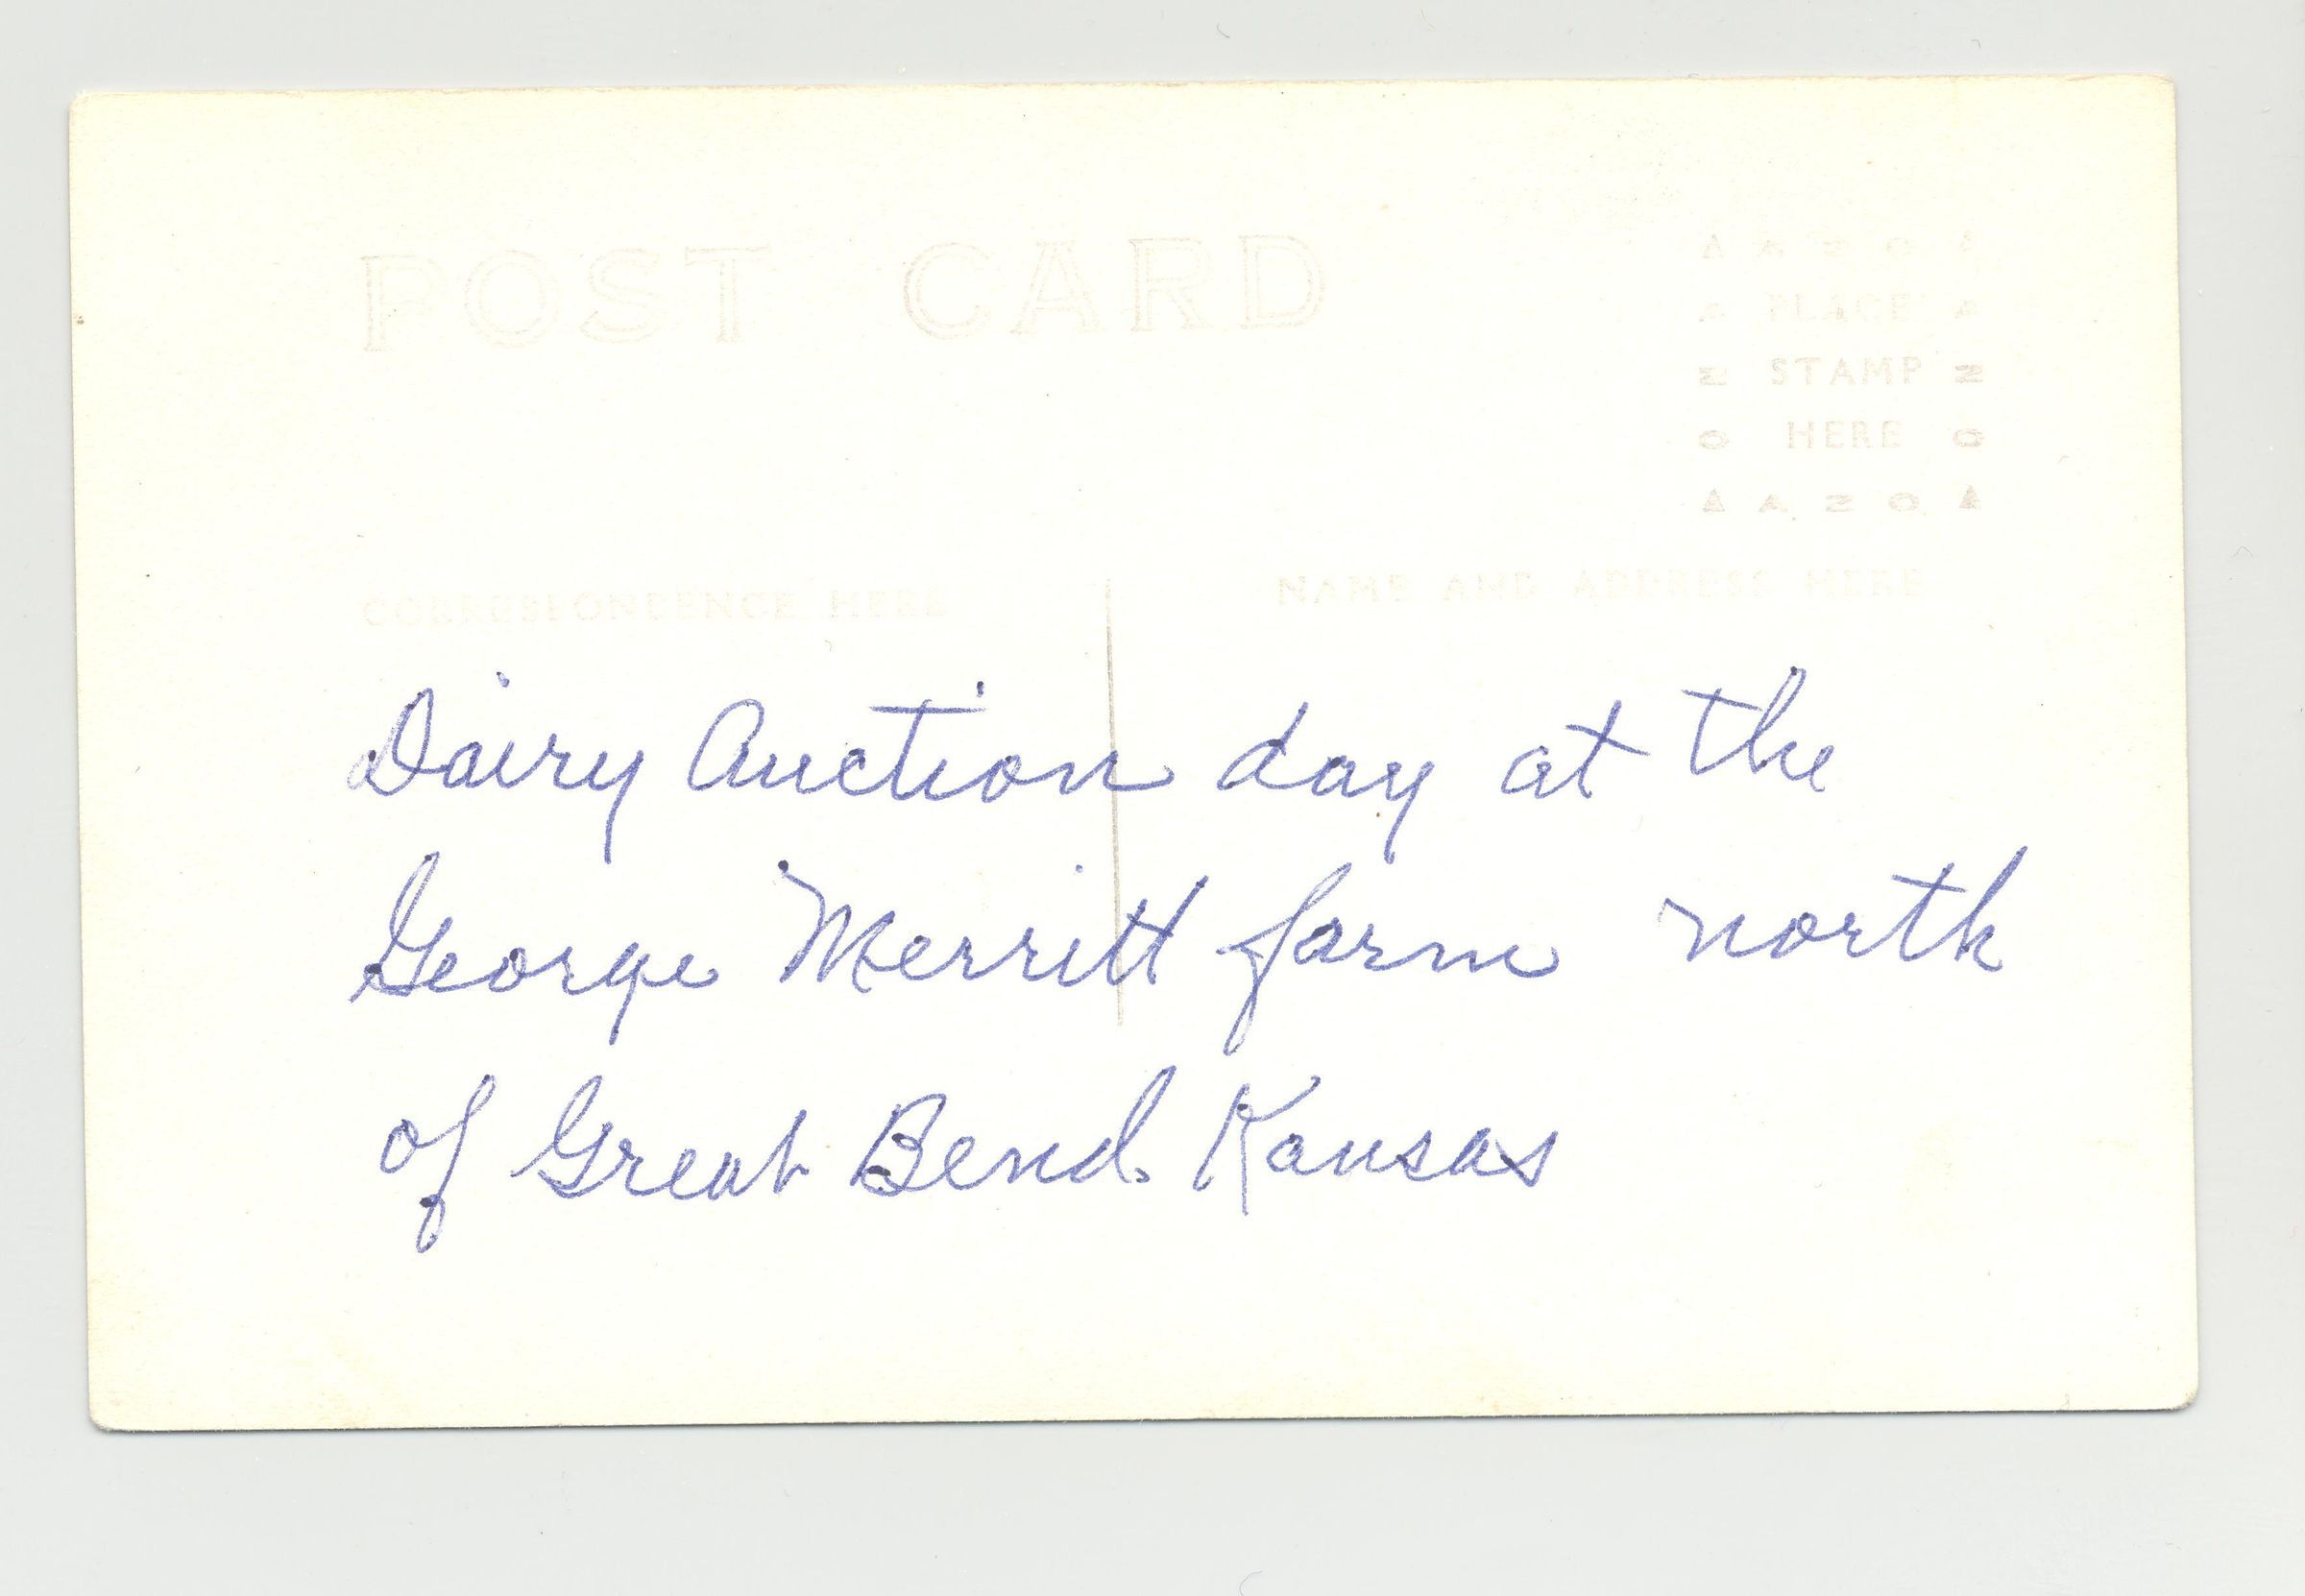 POST CARD
▲ A Z O ▲
A PLACE A
Z STAMP Z
O HERE O
▲ A Z O ▲
CORRESPONDENCE HERE
NAME AND ADDRESS HERE
Dairy Auction day at the
George Merritt farm north
of Great Bend. Kansas